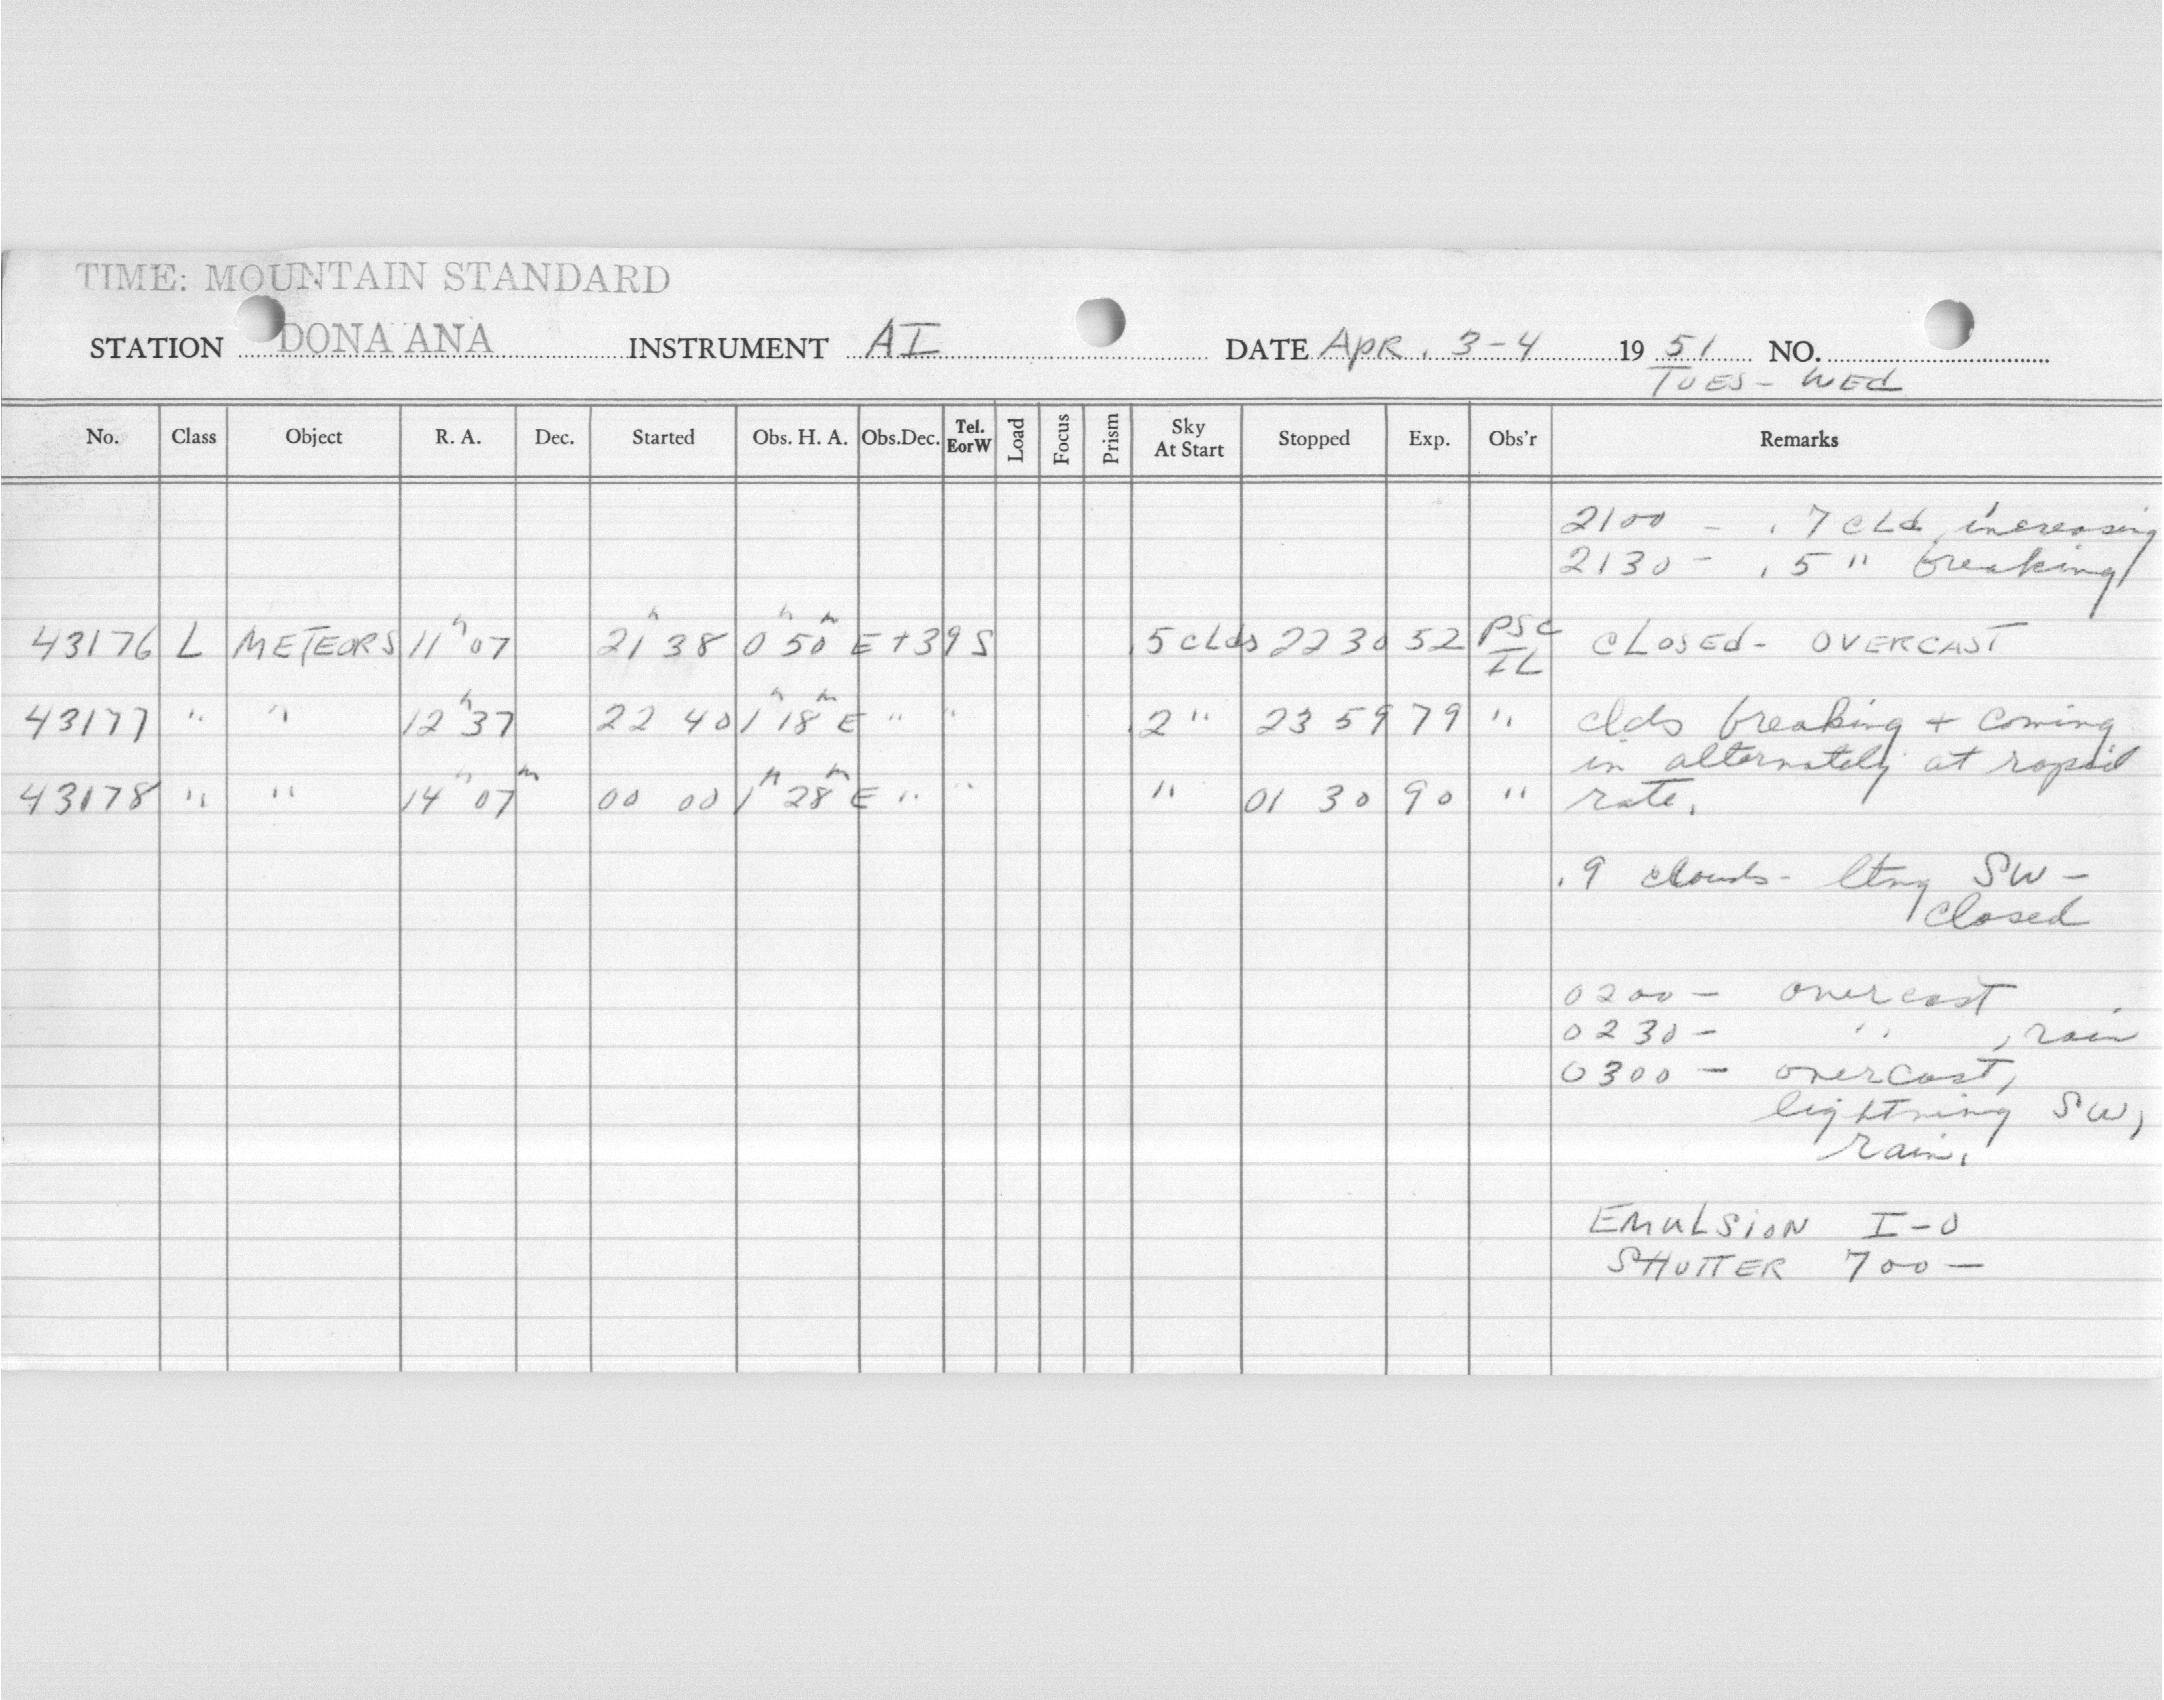 TIME: MOUNTAIN STANDARD
STATION DONA ANA INSTRUMENT AI DATE Apr. 3-4 19 51 NO.
TUES - WED
No. Class Object R. A. Dec. Started Obs. H. A. Obs.Dec. Tel. EorW Load Focus Prism Sky At Start Stopped Exp. Obs'r Remarks
2100 - .7 cld increasing
2130 - .5 " breaking
43176 L METEORS 11h 07 21h 38 0h 50m E +39 S .5 clds 22 30 52 PSC IL CLOSED - OVERCAST
43177 " " 12h 37 22 40 1h 18m E " " .2 " 23 59 79 " clds breaking + coming
in alternately at rapid
43178 " " 14h 07m 00 00 1h 28m E " " " 01 30 90 " rate.
.9 clouds - ltng SW -
closed
0200 - overcast
0230 - " , rain
0300 - overcast,
lightning SW,
rain.
EMULSION I-O
SHUTTER 700 -